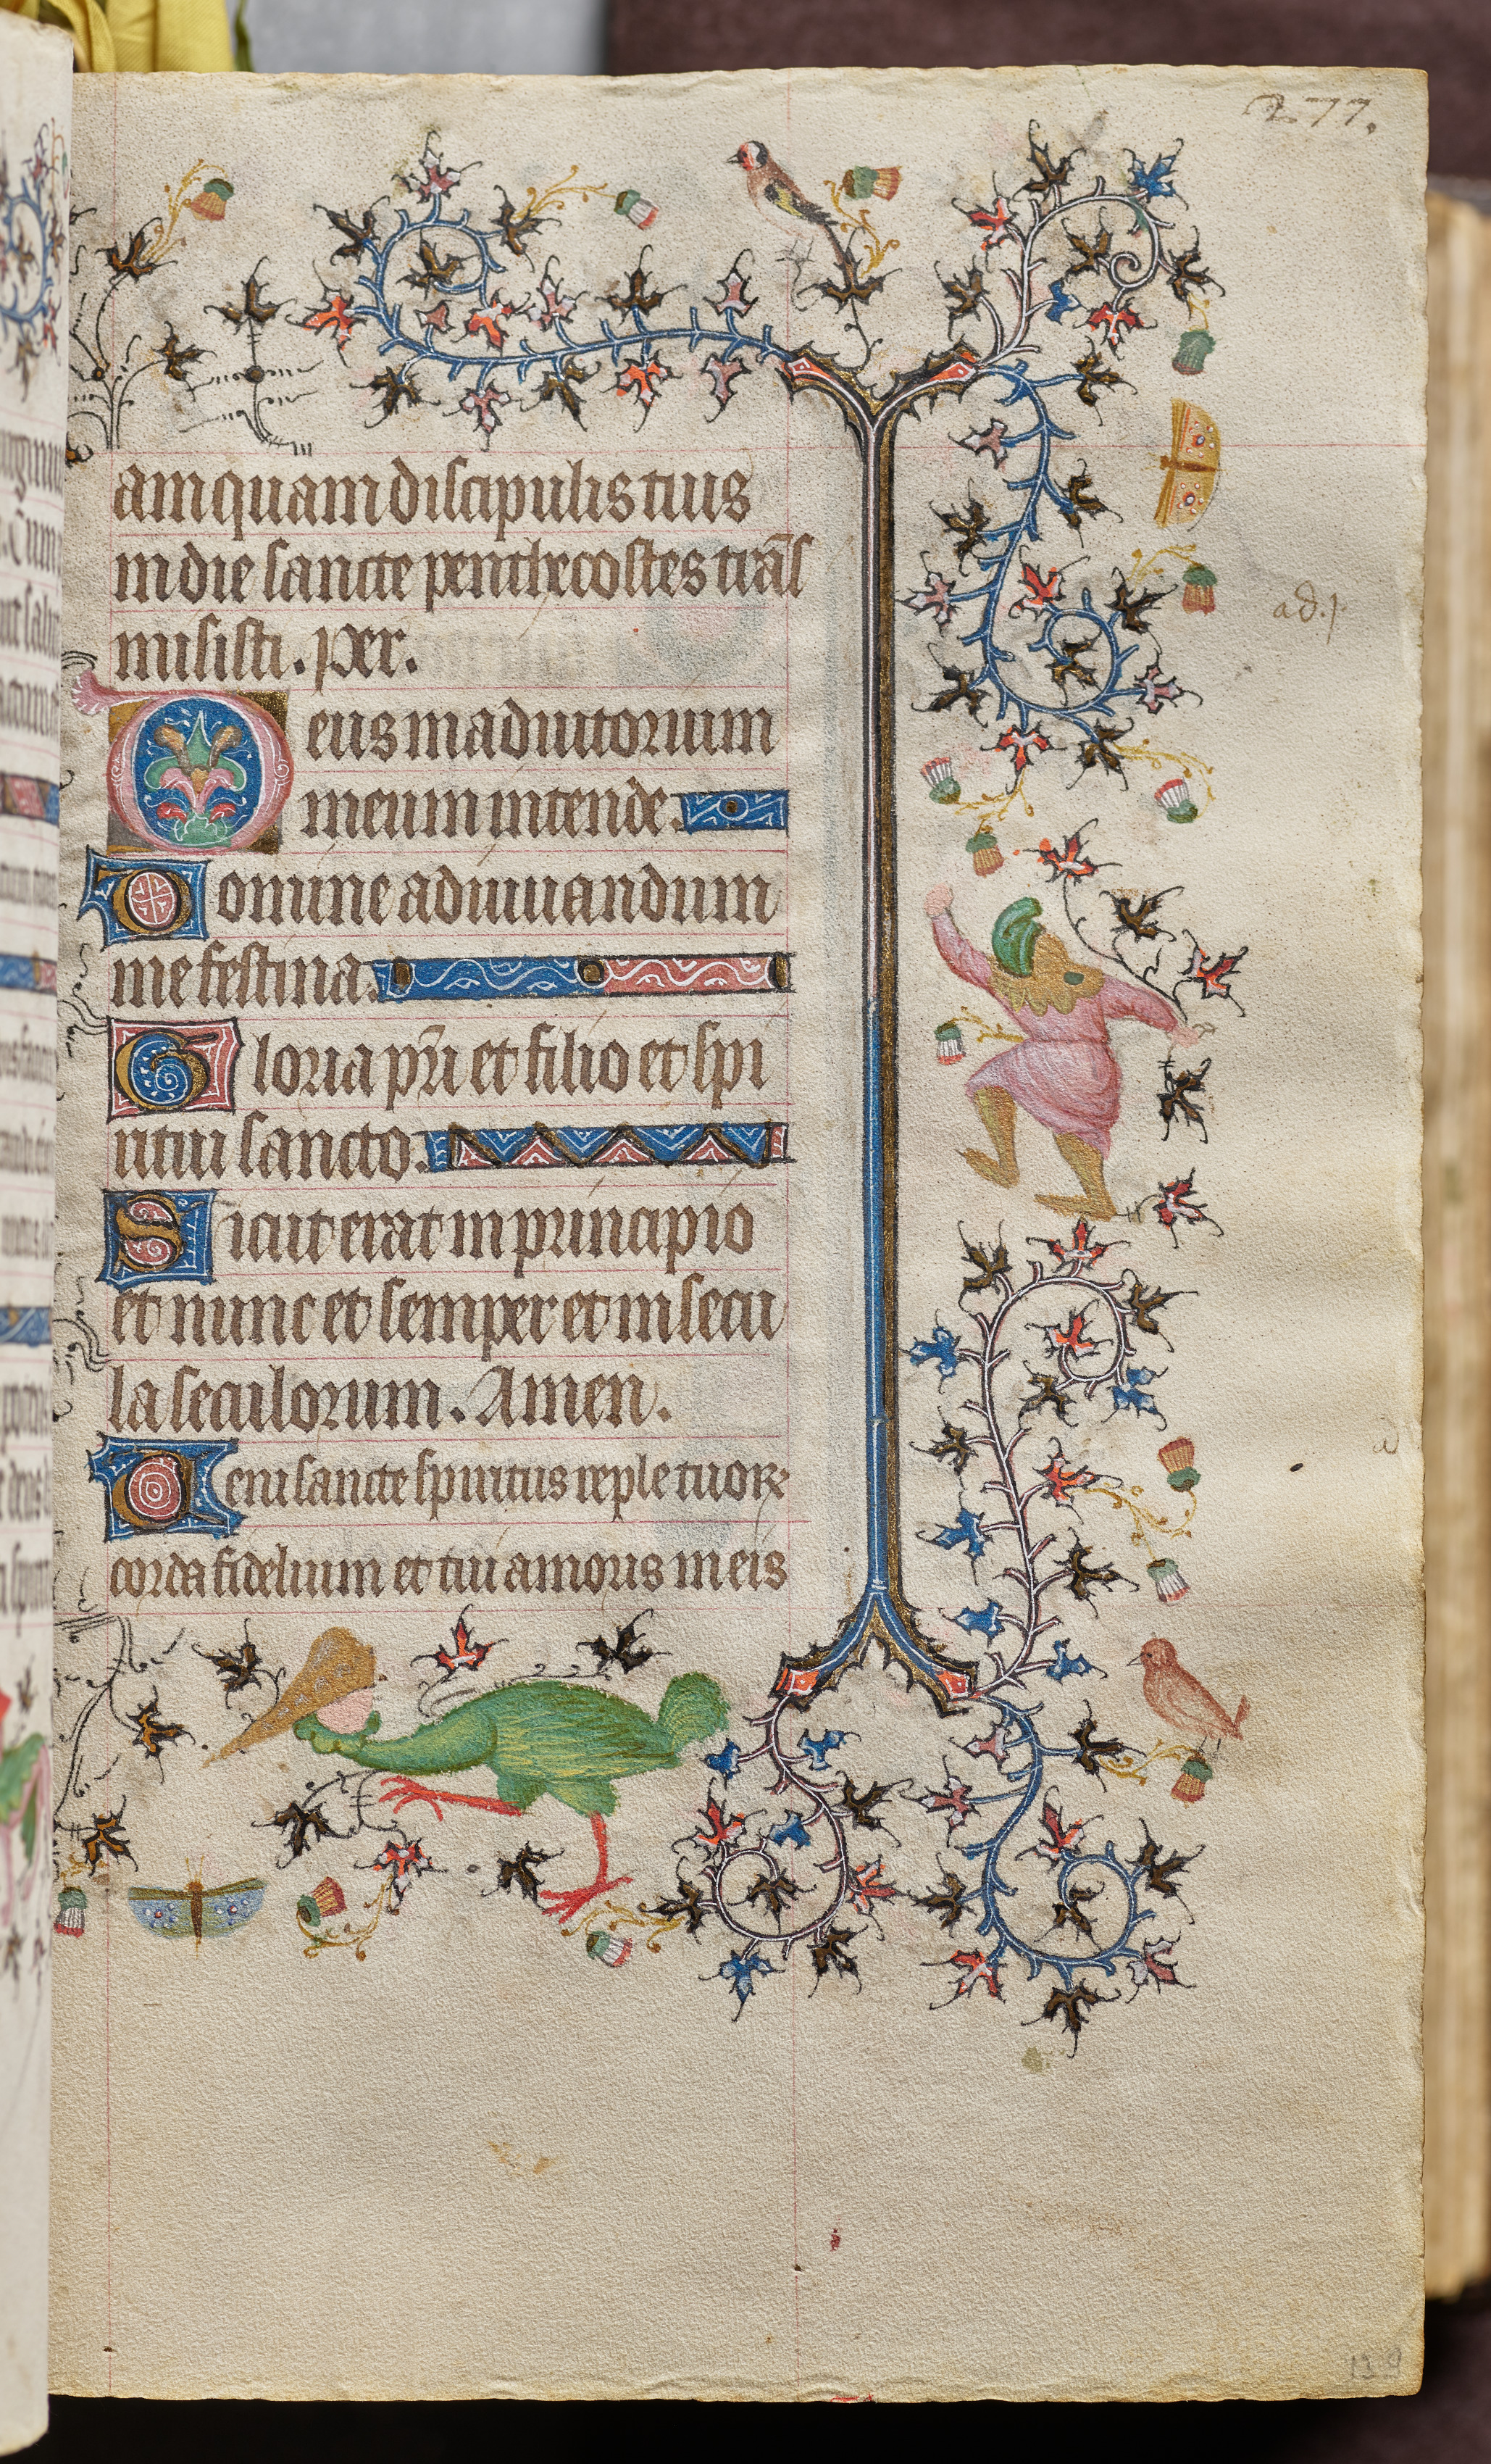 277.
am quam discipulis tuis
in die sancte penthecostes trãs
misisti. per.
Deus in adiutorium
meum intende.
Domine ad iuuandum
me festina.
Gloria pr̃i et filio et spi
ritui sancto.
Sicut erat in principio
et nunc et semper et in secu
la seculorum. Amen.
Veni sancte spiritus reple tuoꝝ
corda fidelium et tui amoris in eis
ad.p
139